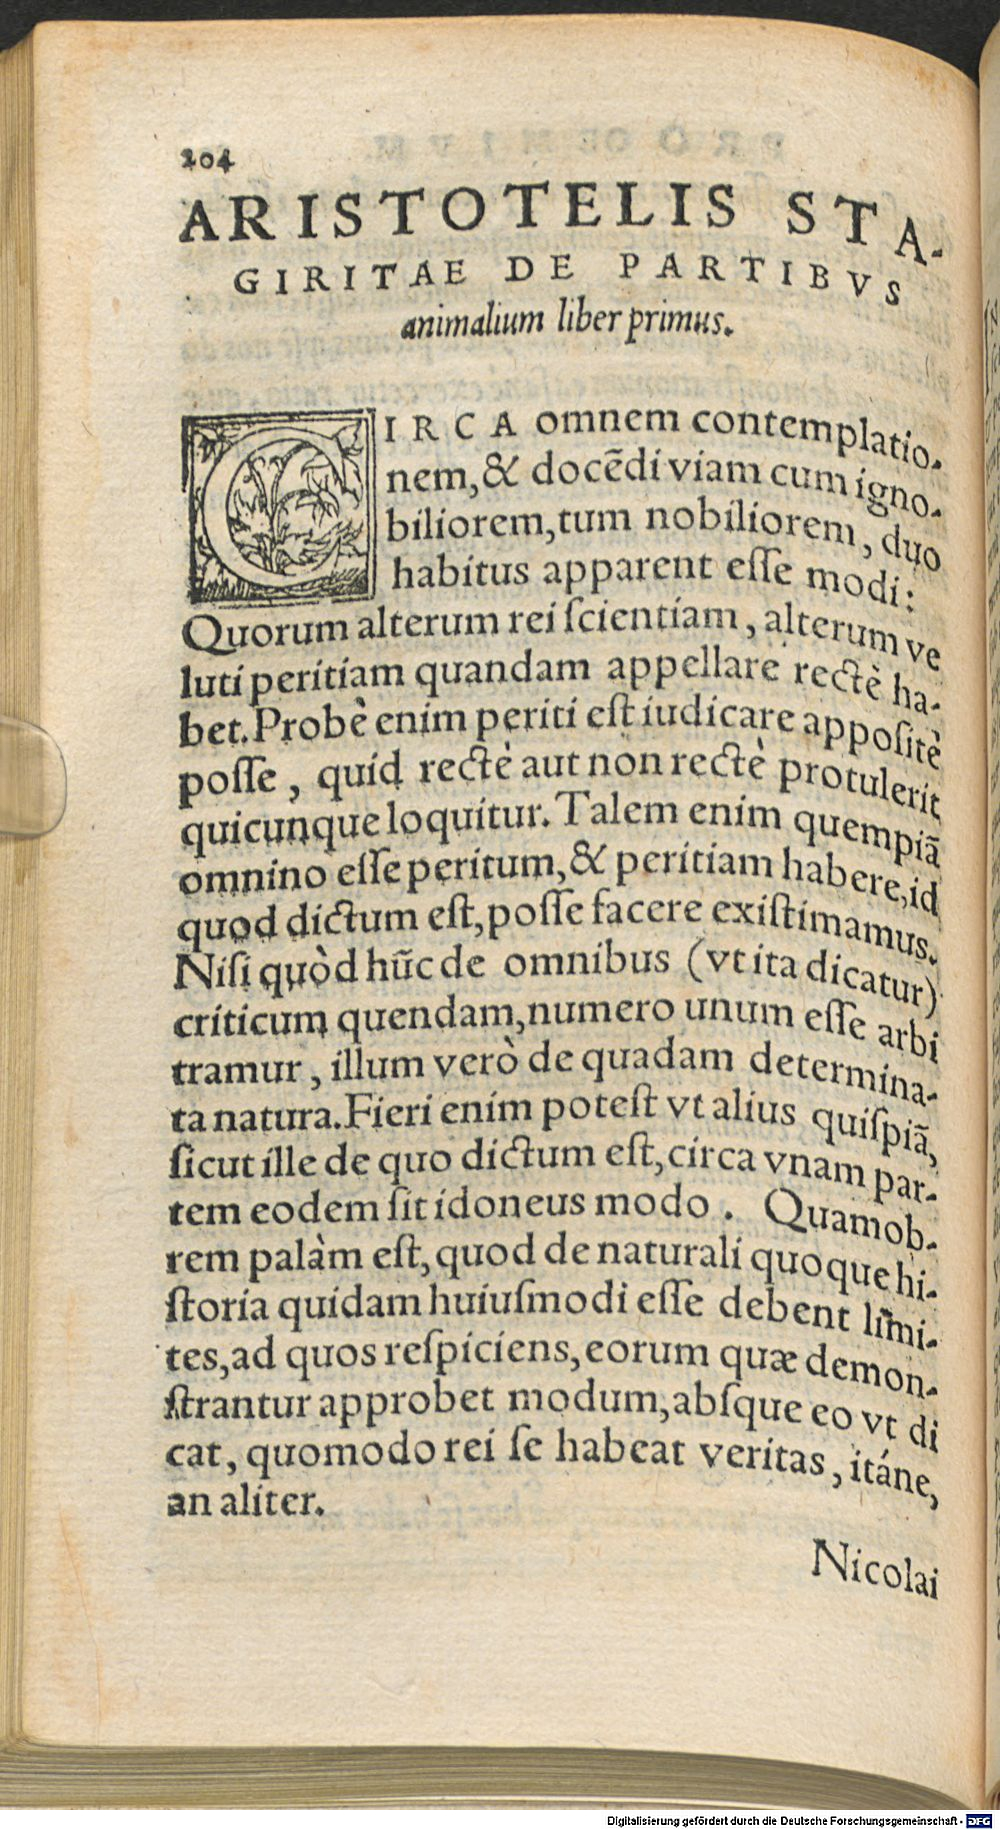 204
ARISTOTELIS STA-
GIRITAE DE PARTIBVS
animalium liber primus.
CIRCA omnem contemplatio-
nem, & docēdi viam cum igno-
biliorem, tum nobiliorem, duo
habitus apparent eſſe modi:
Quorum alterum rei ſcientiam, alterum ve
luti peritiam quandam appellare rectè ha-
bet. Probè enim periti eſt iudicare appoſitè
poſſe, quid rectè aut non rectè protulerit
quicunque loquitur. Talem enim quempiã
omnino eſſe peritum, & peritiam habere, id
quod dictum eſt, poſſe facere exiſtimamus.
Niſi quòd hũc de omnibus (vt ita dicatur)
criticum quendam, numero unum eſſe arbi
tramur, illum verò de quadam determina-
ta natura. Fieri enim poteſt vt alius quiſpiã,
ſicut ille de quo dictum eſt, circa vnam par-
tem eodem ſit idoneus modo. Quamob-
rem palàm eſt, quod de naturali quoque hi-
ſtoria quidam huiuſmodi eſſe debent limi-
tes, ad quos reſpiciens, eorum quæ demon-
ſtrantur approbet modum, abſque eo vt di
cat, quomodo rei ſe habeat veritas, itáne,
an aliter.
Nicolai
Digitalisierung gefördert durch die Deutsche Forschungsgemeinschaft - DFG